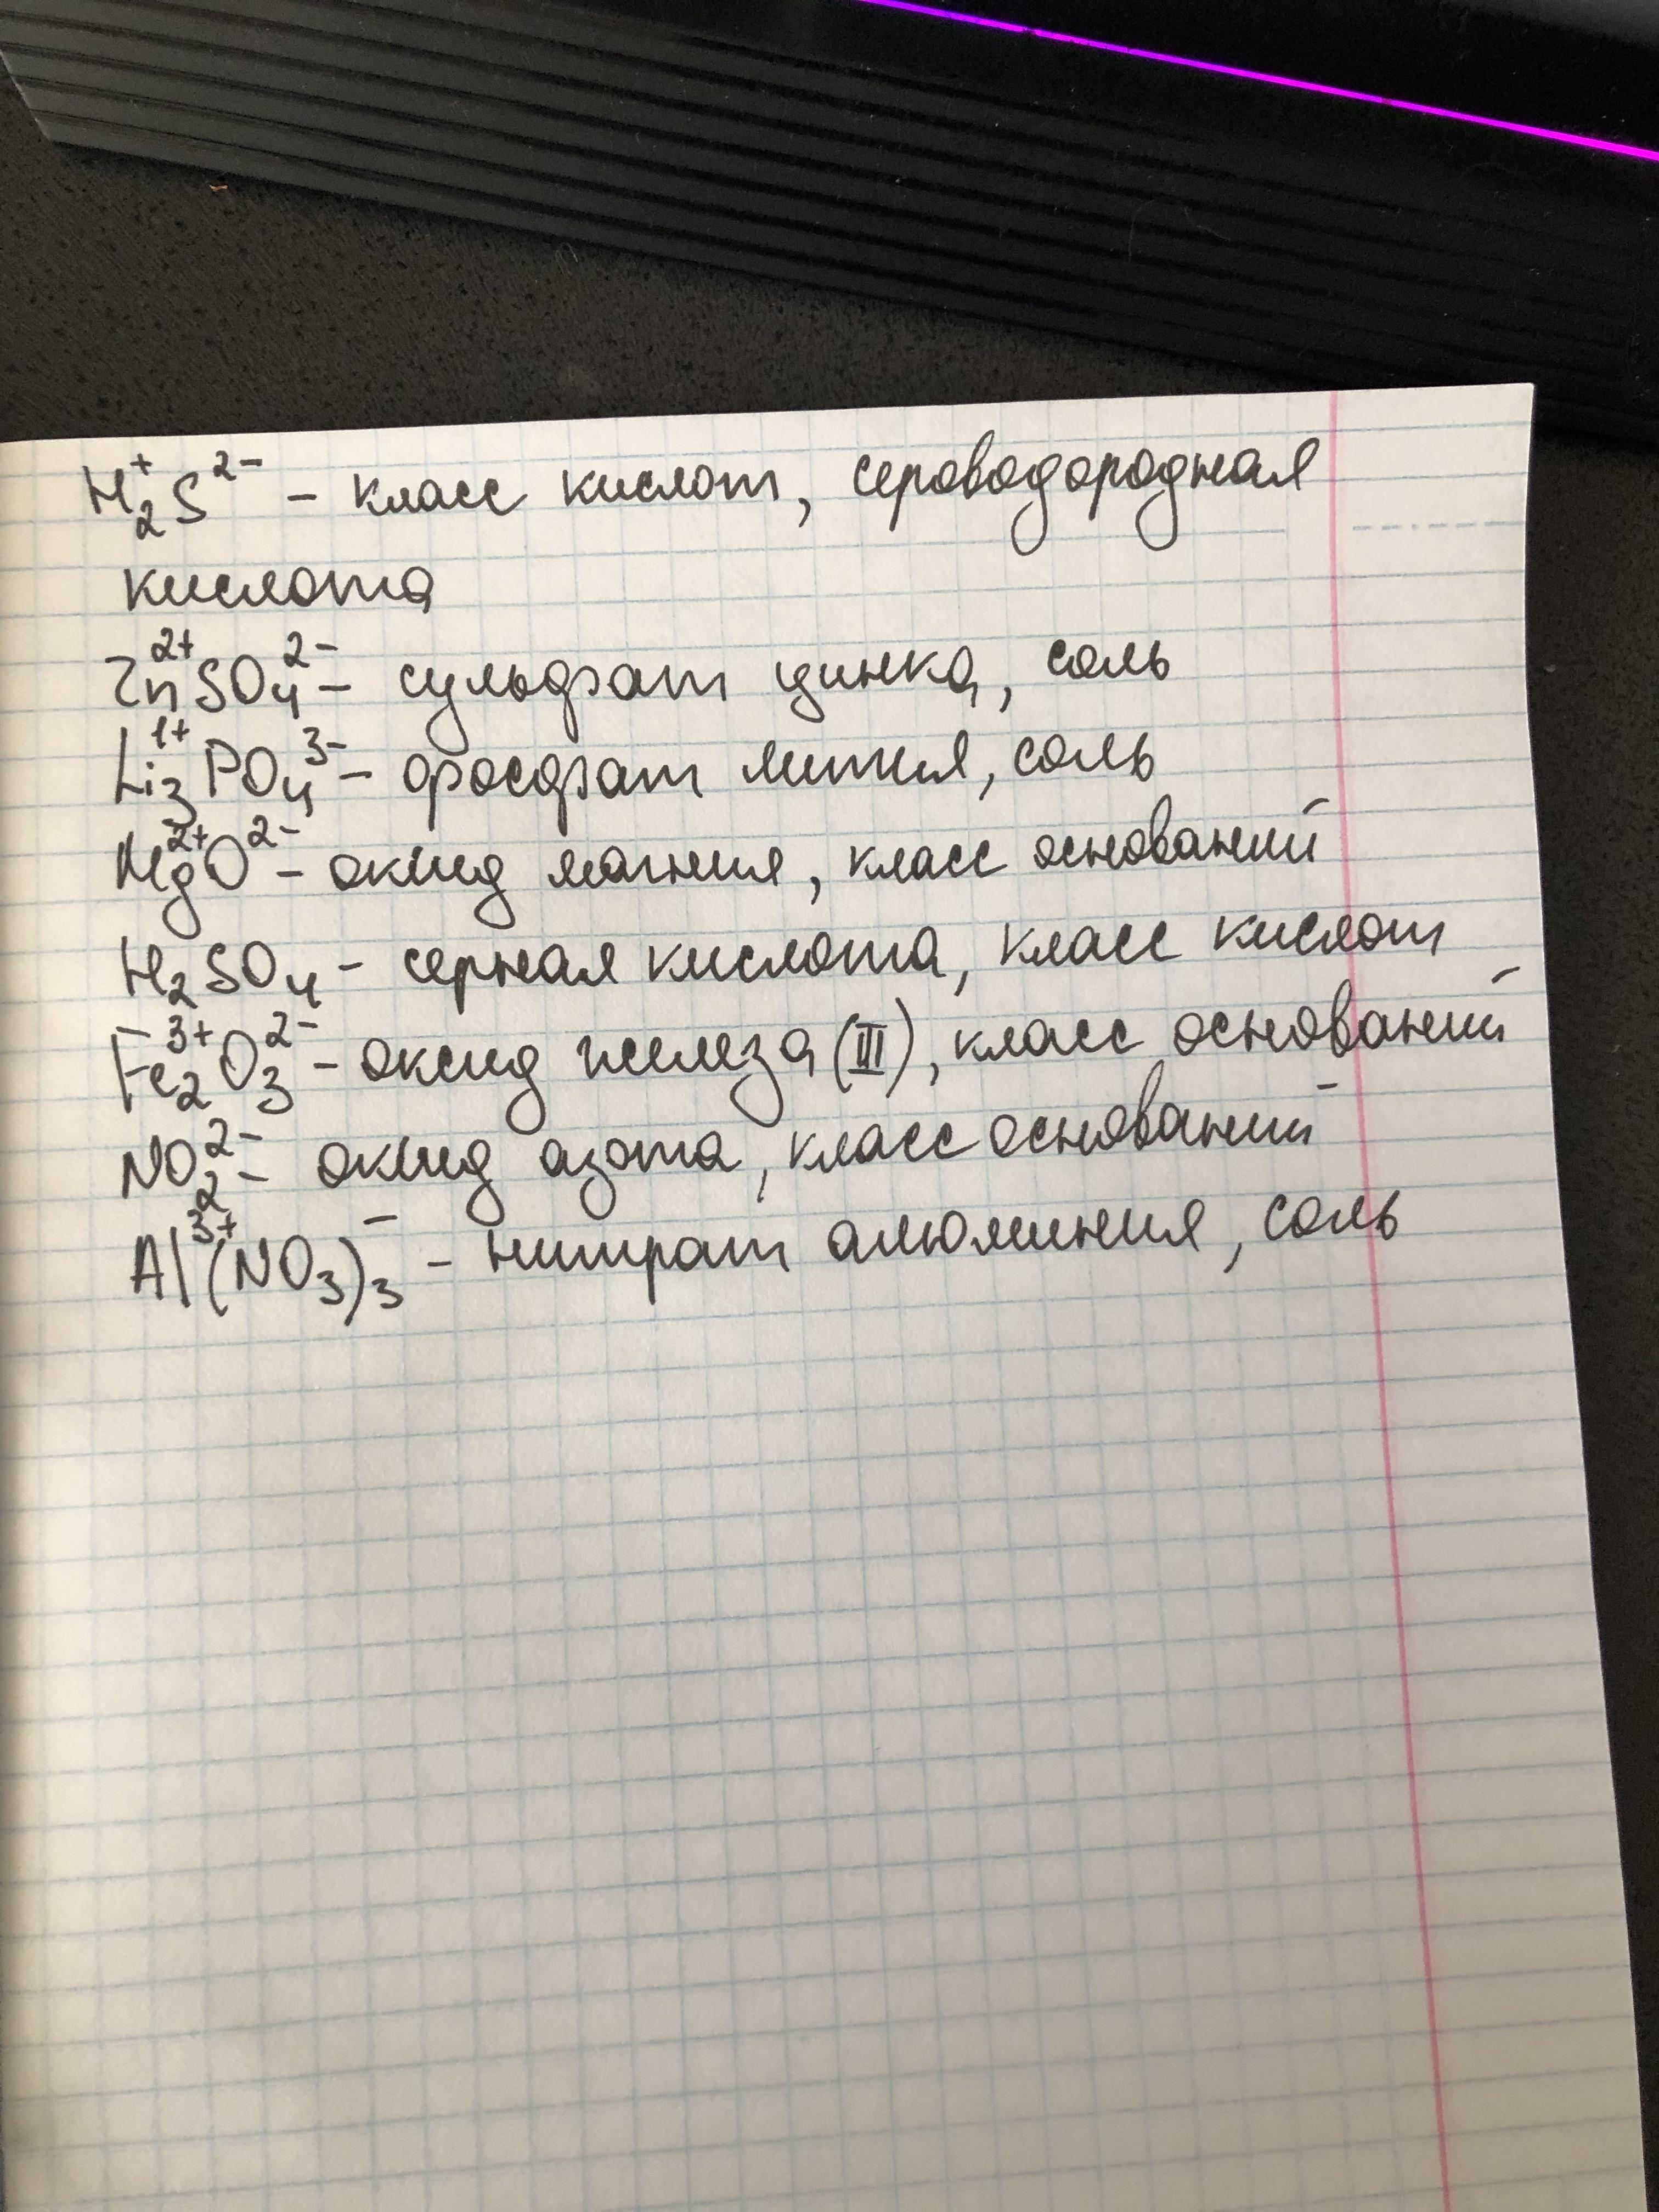 H₂⁺S²⁻ – класс кислот, сероводородная
кислота
Zn²⁺SO₄²⁻ – сульфат цинка, соль
Li₃¹⁺PO₄³⁻ – фосфат лития, соль
Mg²⁺O²⁻ – оксид магния, класс оснований
H₂SO₄ – серная кислота, класс кислот
Fe₂³⁺O₃²⁻ – оксид железа (III), класс оснований
NO₂²⁻ – оксид азота, класс оснований
Al³⁺(NO₃)₃⁻ – нитрат алюминия, соль